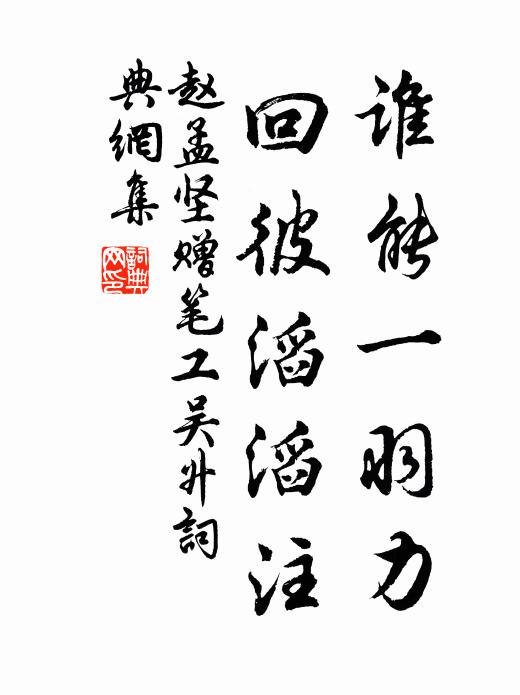 谁能一羽力
回彼滔滔注
赵孟坚赠笔工吴升詞
典網集
詞典网印